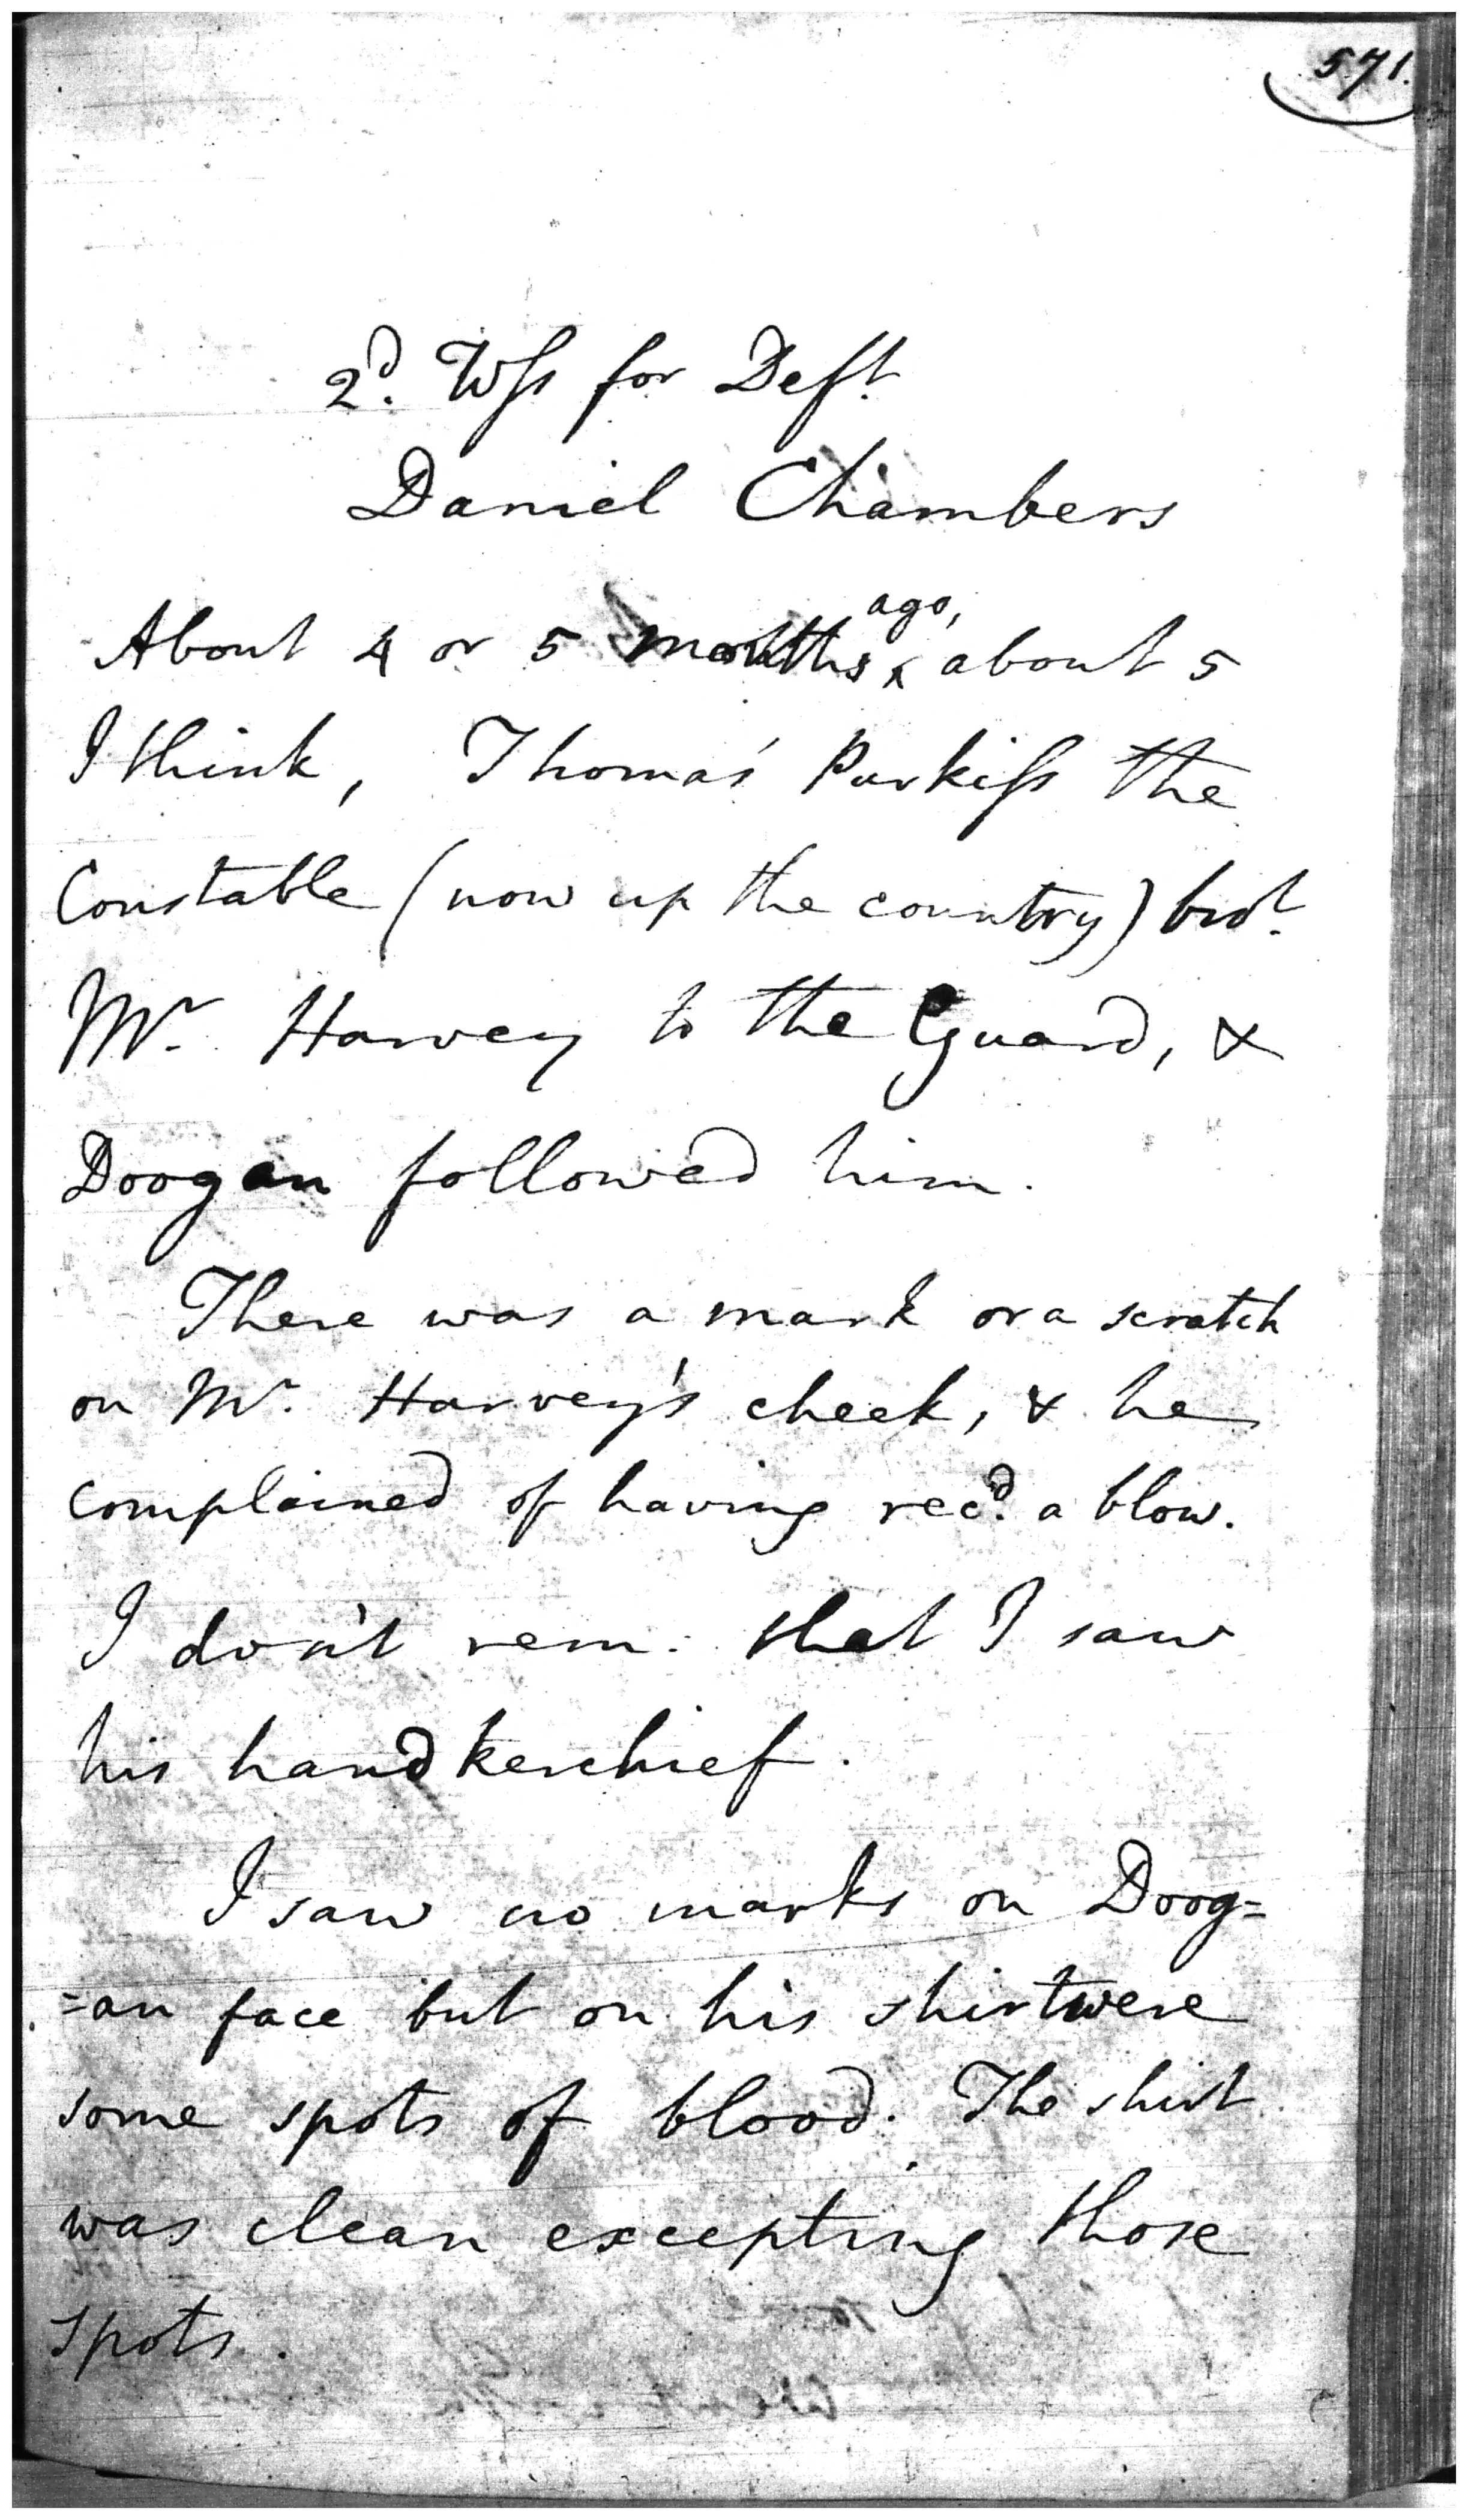 571.
2d. Wss for Deft.
Daniel Chambers
About 4 or 5 months ago, about 5
I think, Thomas Purkiss the
Constable (now up the country) brot.
Mr. Harvey to the Guard, &
Doogan followed him.
There was a mark or a scratch
on Mr. Harvey's cheek, & he
complained of having recd. a blow.
I don't rem: that I saw
his handkerchief.
I saw no marks on Doog=
=an face but on his shirt were
some spots of blood. The shirt
was clean excepting those
spots.